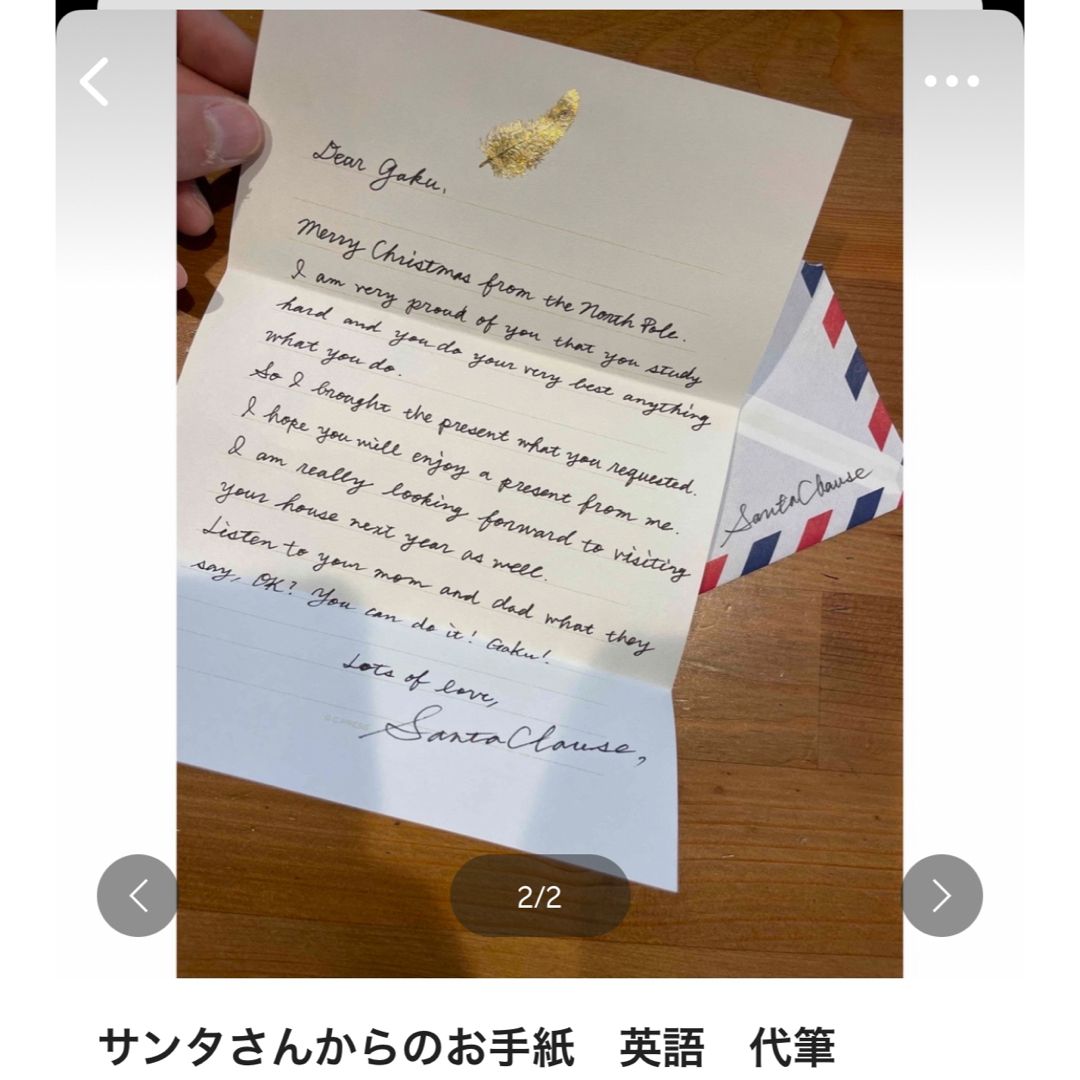 Dear Gaku,
Merry Christmas from the North Pole.
I am very proud of you that you study
hard and you do your very best anything
what you do.
So I brought the present what you requested.
I hope you will enjoy a present from me.
I am really looking forward to visiting
your house next year as well.
Listen to your mom and dad what they
say, OK? You can do it! Gaku!
Lots of love,
Santa Clause,
Santa Clause
2/2
サンタさんからのお手紙　英語　代筆